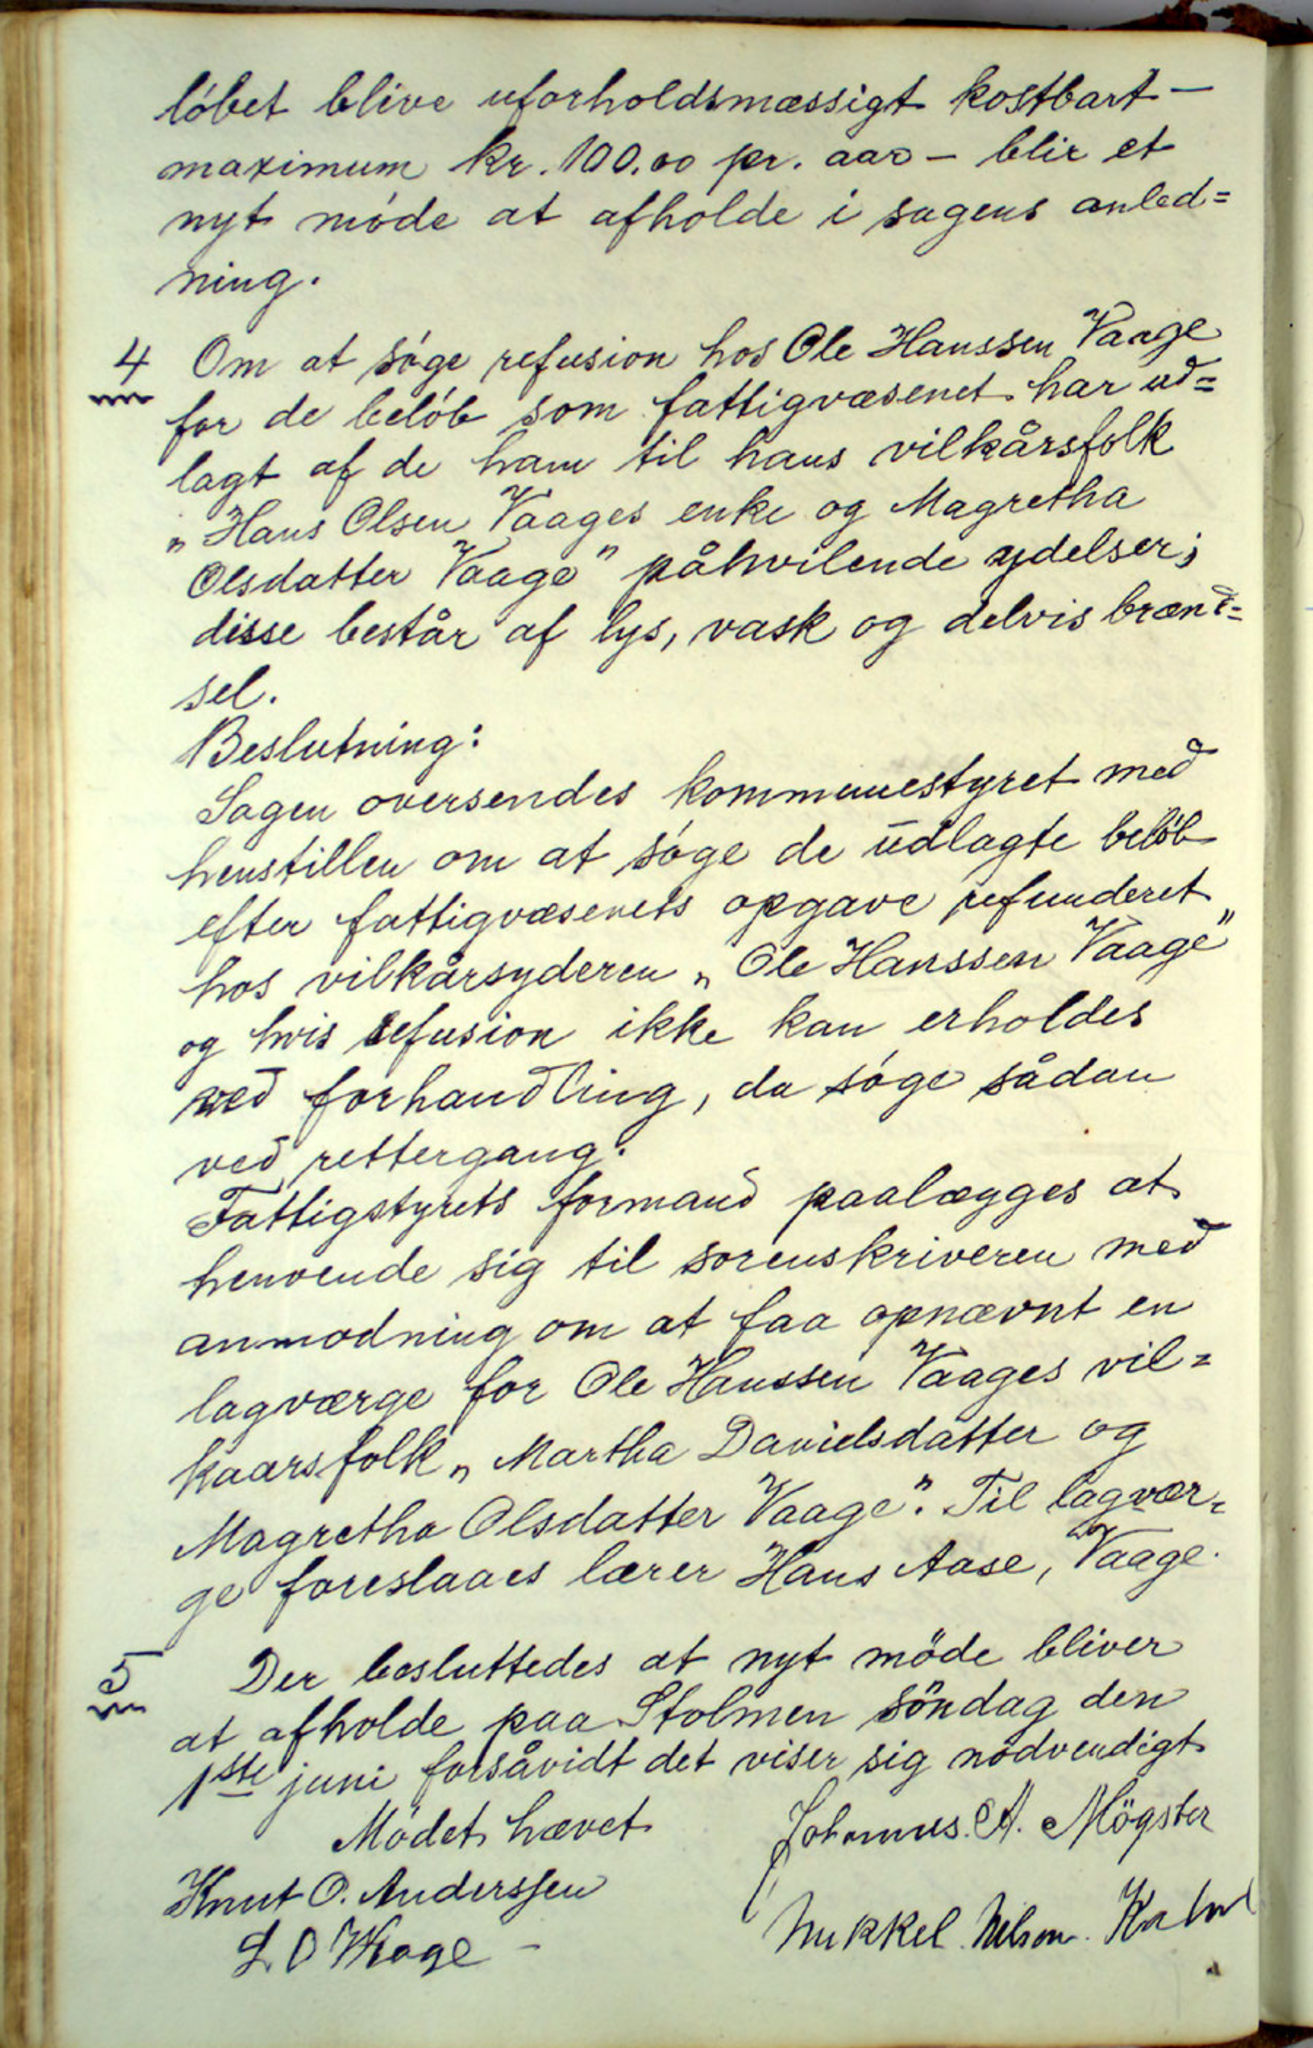 løbet blive uforholdsmæssigt kostbart –
maximum kr. 100.00 pr. aar – blir et
nyt møde at afholde i sagens anled=
ning.
4 Om at søge refusion hos Ole Hanssen Vaage
for de beløb som fattigvæsenet har ud=
lagt af de ham til hans vilkårsfolk
„Hans Olsen Vaages enke og Magretha
Olsdatter Vaage" påhvilende ydelser;
disse består af lys, vask og delvis brænd=
sel.
Beslutning:
Sagen oversendes kommunestyret med
henstillen om at søge de udlagte beløb
efter fattigvæsenets opgave refunderet
hos vilkårsyderen „Ole Hanssen Vaage"
og hvis refusion ikke kan erholdes
ved forhandling, da søge sådan
ved rettergang.
Fattigstyrets formand paalægges at
henvende sig til sorenskriveren med
anmodning om at faa opnævnt en
lagværge for Ole Hanssen Vaages vil=
kaarsfolk „Martha Davidsdatter og
Magretha Olsdatter Vaage". Til lagvær=
ge foreslaaes lærer Hans Aase, Vaage.
5 Der besluttedes at nyt möde bliver
at afholde paa Stolmen söndag den
1ste juni forsåvidt det viser sig nødvendigt
Mödet hævet
Johannes. A. Mögster
Knut O. Anderssen
Mikkel Nelson
L. O Waage –